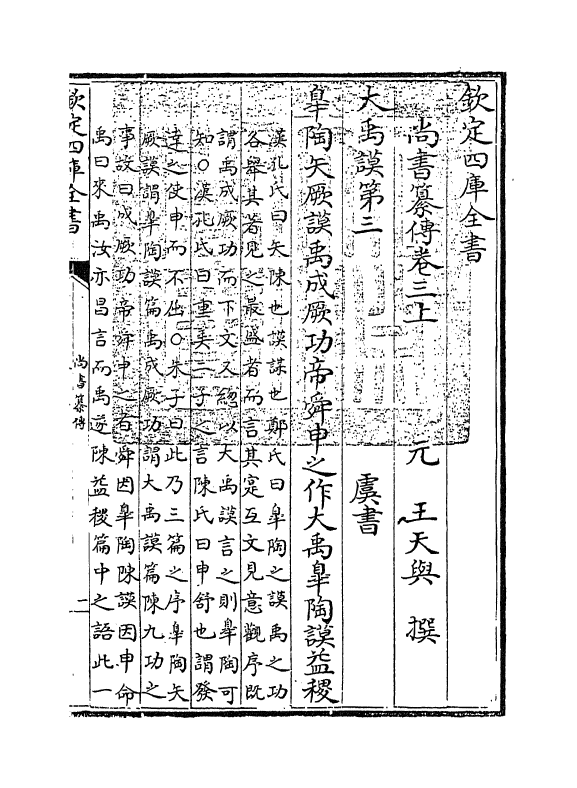 欽定四庫全書
尚書纂傳卷三上 元 王天與 撰
大禹謨第三 虞書
皐陶矢厥謨禹成厥功帝舜申之作大禹皐陶謨益稷
漢孔氏曰矢陳也謨謀也鄭氏曰皐陶之謨禹之功
各舉其著見之最盛者而言其寔互文見意觀序既
謂禹成厥功而下文又總以大禹謨言之則皐陶可
知○漢孔氏曰重美二子之言陳氏曰申舒也謂發
達之使申而不○朱子曰此乃三篇之序皐陶矢
厥謨謂皐陶謨篇禹成厥功謂大禹謨篇陳九功之
事故曰成厥功帝舜申之者舜因皐陶陳謨因申命
禹曰來禹汝亦昌言而禹遂陳益稷篇中之語此一
欽定四庫全書 尚書纂傳